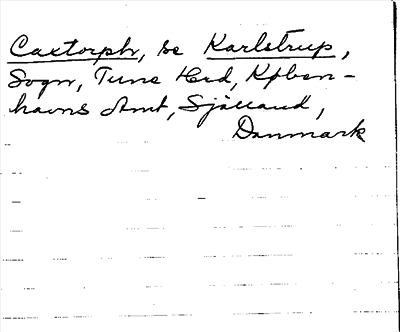 Caxtorph, se Karlstrup,
Sogn, Tune Herd, Kpben-
havns Amt, Sjælland,
Danmark